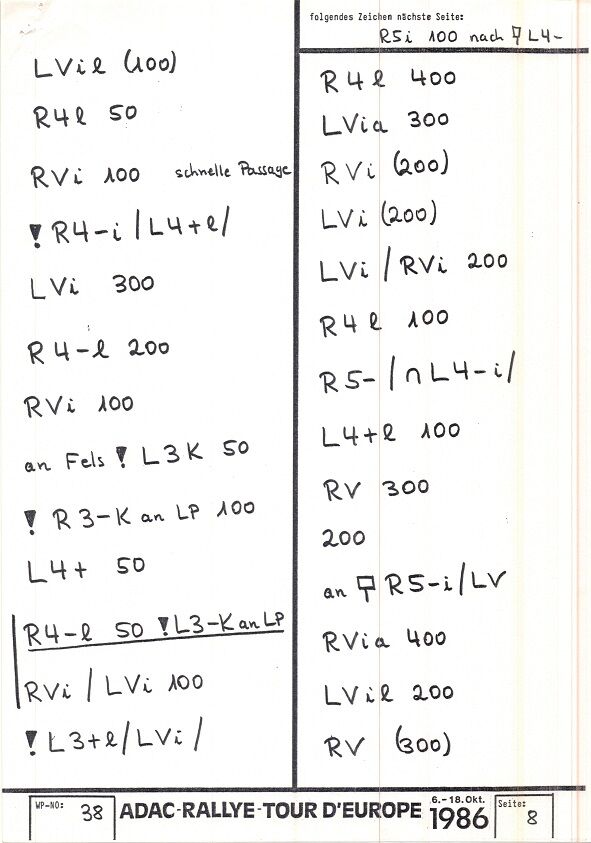 folgendes Zeichen nächste Seite:
R5i 100 nach L4-
LVil (100)
R4l 50
RVi 100 schnelle Passage
! R4-i / L4+l /
LVi 300
R4-l 200
RVi 100
an Fels ! L3K 50
! R3-K an LP 100
L4+ 50
R4-l 50 ! L3-K an LP
RVi / LVi 100
! L3+l / LVi /
R4l 400
LVia 300
RVi (200)
LVi (200)
LVi / RVi 200
R4l 100
R5- / ∩ L4-i /
L4+l 100
RV 300
200
an R5-i / LV
RVia 400
LVil 200
RV (300)
WP-NO: 38
ADAC-RALLYE-TOUR D'EUROPE
6.-18. Okt.
1986
Seite: 8